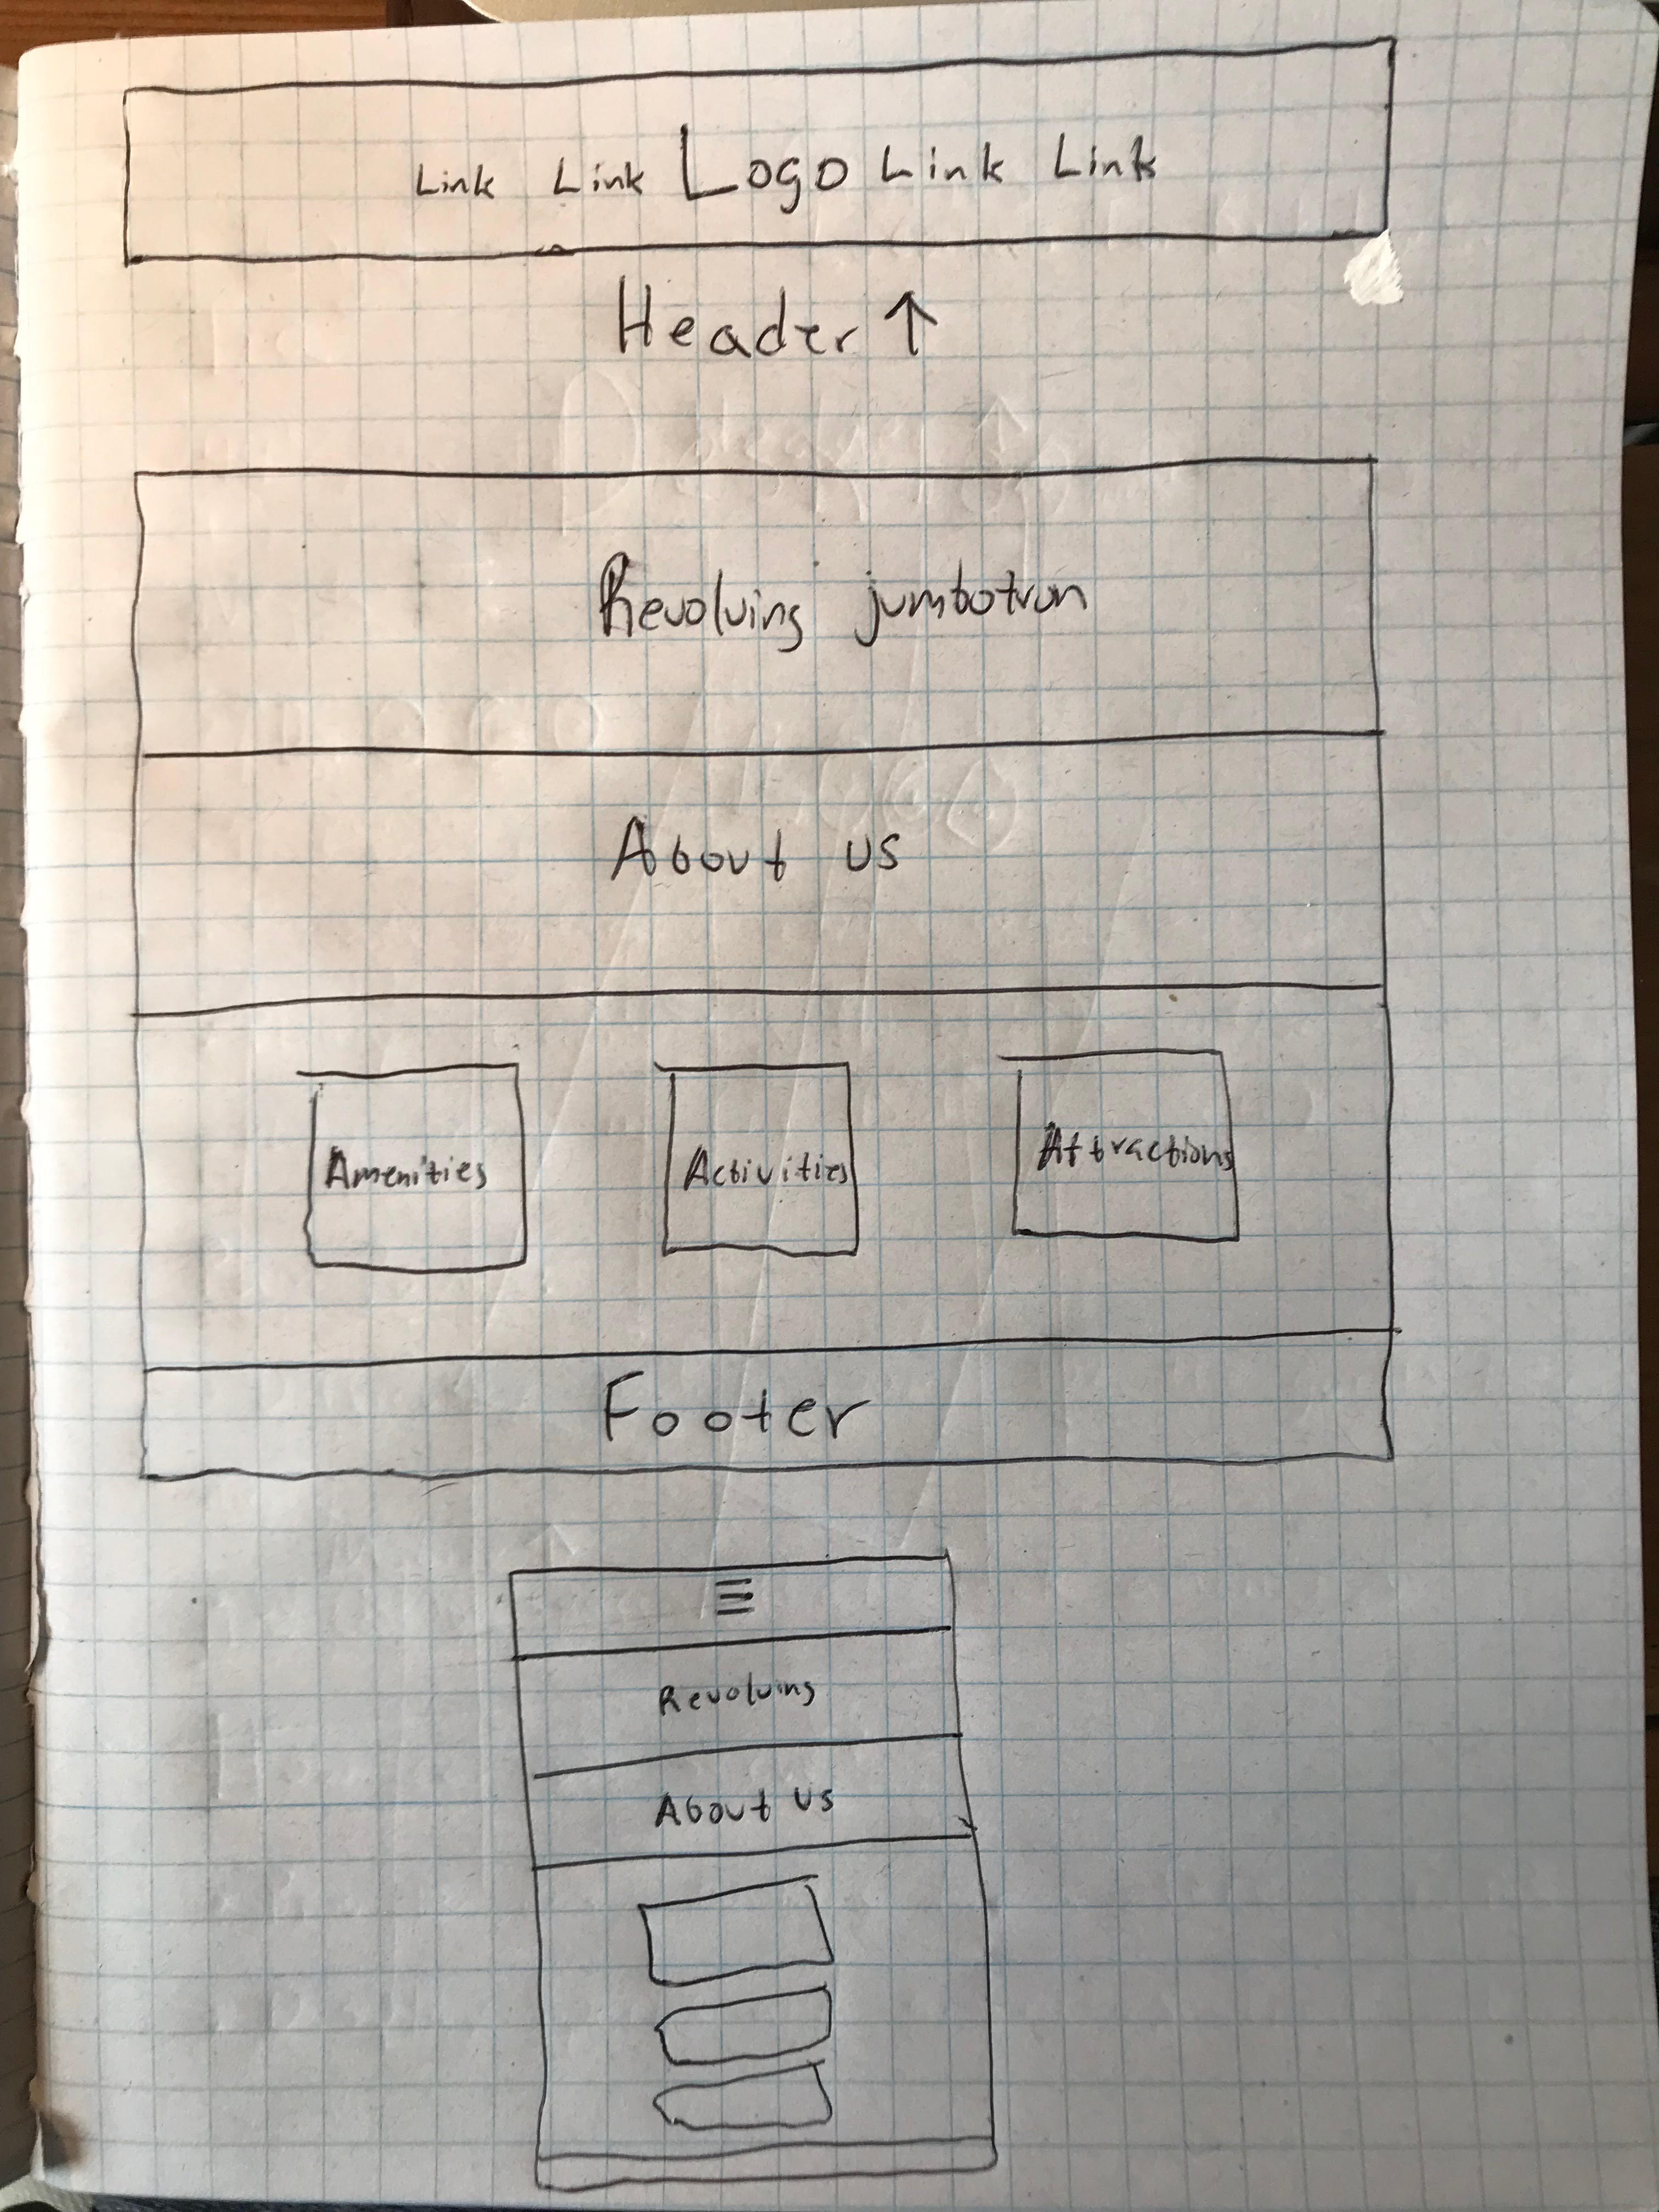 Link Link Logo Link Link
Header ↑
Revolving jumbotron
About us
Amenities Activities Attractions
Footer
Revolving
About Us